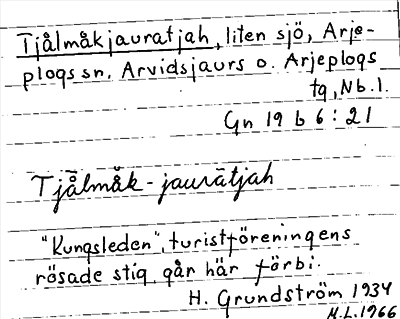 Tjålmåkjauratjah, liten sjö, Arje-
plogs sn. Arvidsjaurs o. Arjeplogs
tg, Nb.l.
Gn 19 b 6:21
Tjålmåk-jaurātjah
"Kungsleden", turistföreningens
rösade stig går här förbi.
H. Grundström 1934
M.L. 1966